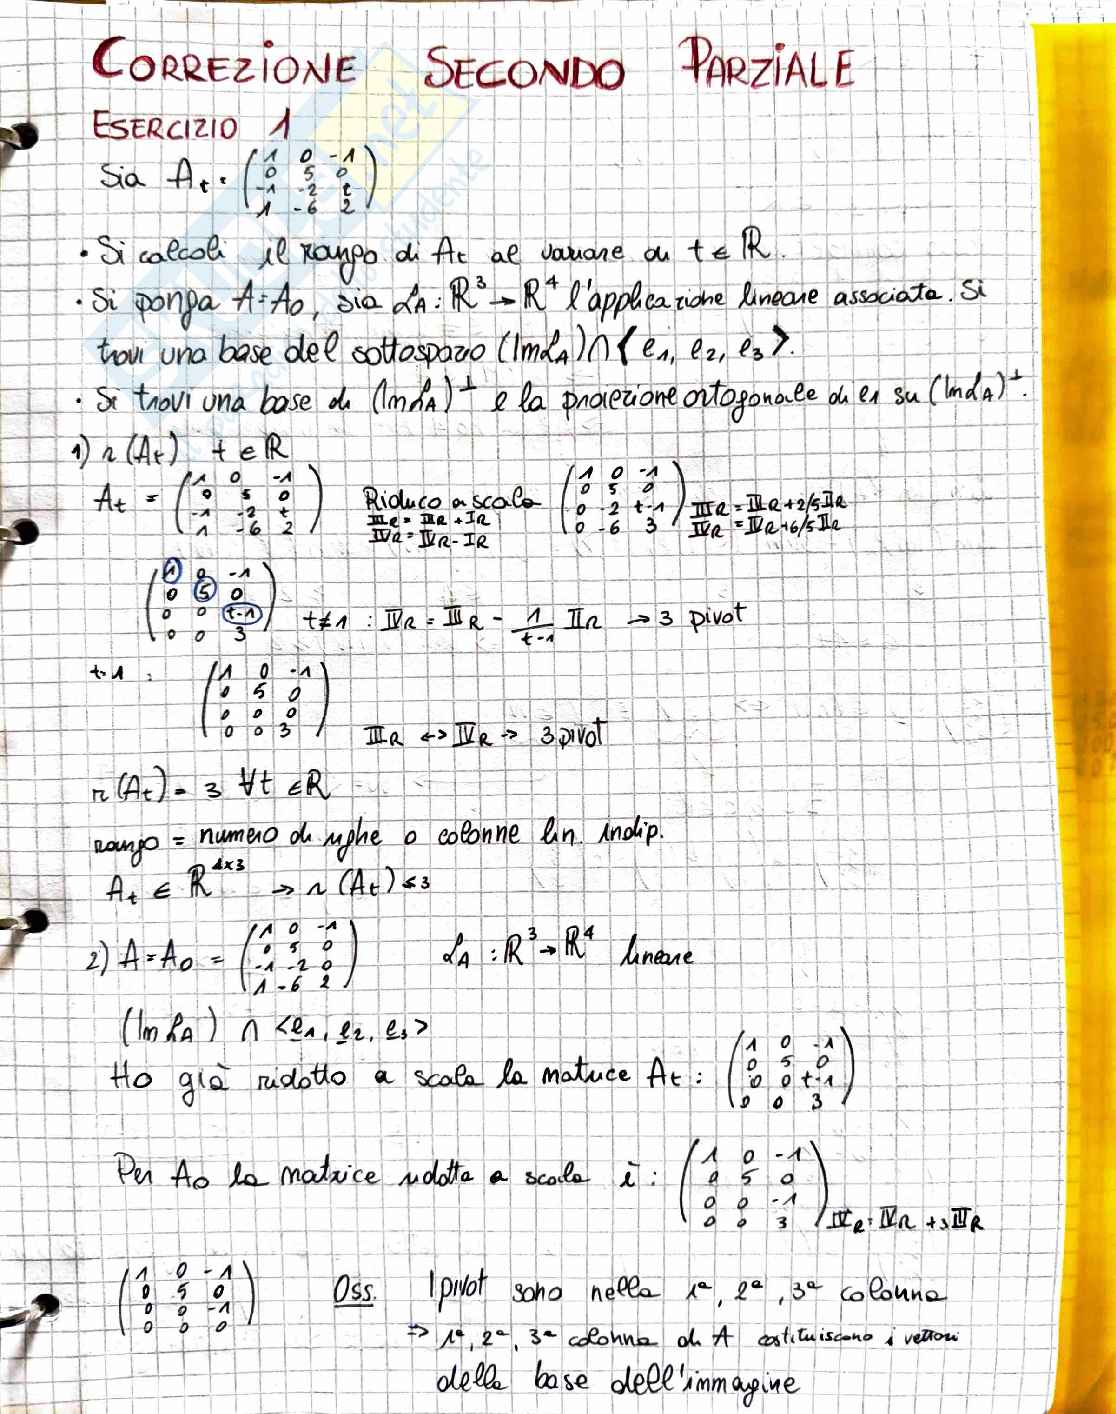 CORREZIONE SECONDO PARZIALE
ESERCIZIO 1
Sia At = (1 0 -1
0 5 0
-1 -2 t
1 -6 2)
• Si calcoli il rango di At al variare di t ∈ ℝ.
• Si ponga A=A0, sia LA: ℝ³ → ℝ⁴ l'applicazione lineare associata. Si
trovi una base del sottospazio (Im LA) ∩ <e1, e2, e3>.
• Si trovi una base di (Im LA)⊥ e la proiezione ortogonale di e1 su (Im LA)⊥.
1) r(At) t ∈ ℝ
At = (1 0 -1
0 5 0
-1 -2 t
1 -6 2)
Riduco a scala
IIIR = IIIR + IR
IVR = IVR - IR
(1 0 -1
0 5 0
0 -2 t-1
0 -6 3)
IIIR = IIR + 2/5 IIR
IVR = IVR + 6/5 IIR
(1 0 -1
0 5 0
0 0 t-1
0 0 3)
t≠1 : IVR = IIIR - 1/(t-1) IIR → 3 pivot
t=1 : (1 0 -1
0 5 0
0 0 0
0 0 3)
IIIR ↔ IVR → 3 pivot
r(At) = 3 ∀t ∈ ℝ
rango = numero di righe o colonne lin. indip.
At ∈ ℝ⁴ˣ³ → r(At) ≤ 3
2) A = A0 = (1 0 -1
0 5 0
-1 -2 0
1 -6 2)
LA : ℝ³ → ℝ⁴ lineare
(Im LA) ∩ <e1, e2, e3>
Ho già ridotto a scala la matrice At : (1 0 -1
0 5 0
0 0 t-1
0 0 3)
Per A0 la matrice ridotta a scala è : (1 0 -1
0 5 0
0 0 -1
0 0 3)
IVR = IVR + 3 IIIR
(1 0 -1
0 5 0
0 0 -1
0 0 0)
Oss. I pivot sono nella 1ª, 2ª, 3ª colonna
⇒ 1ª, 2ª, 3ª colonna di A costituiscono i vettori
della base dell'immagine